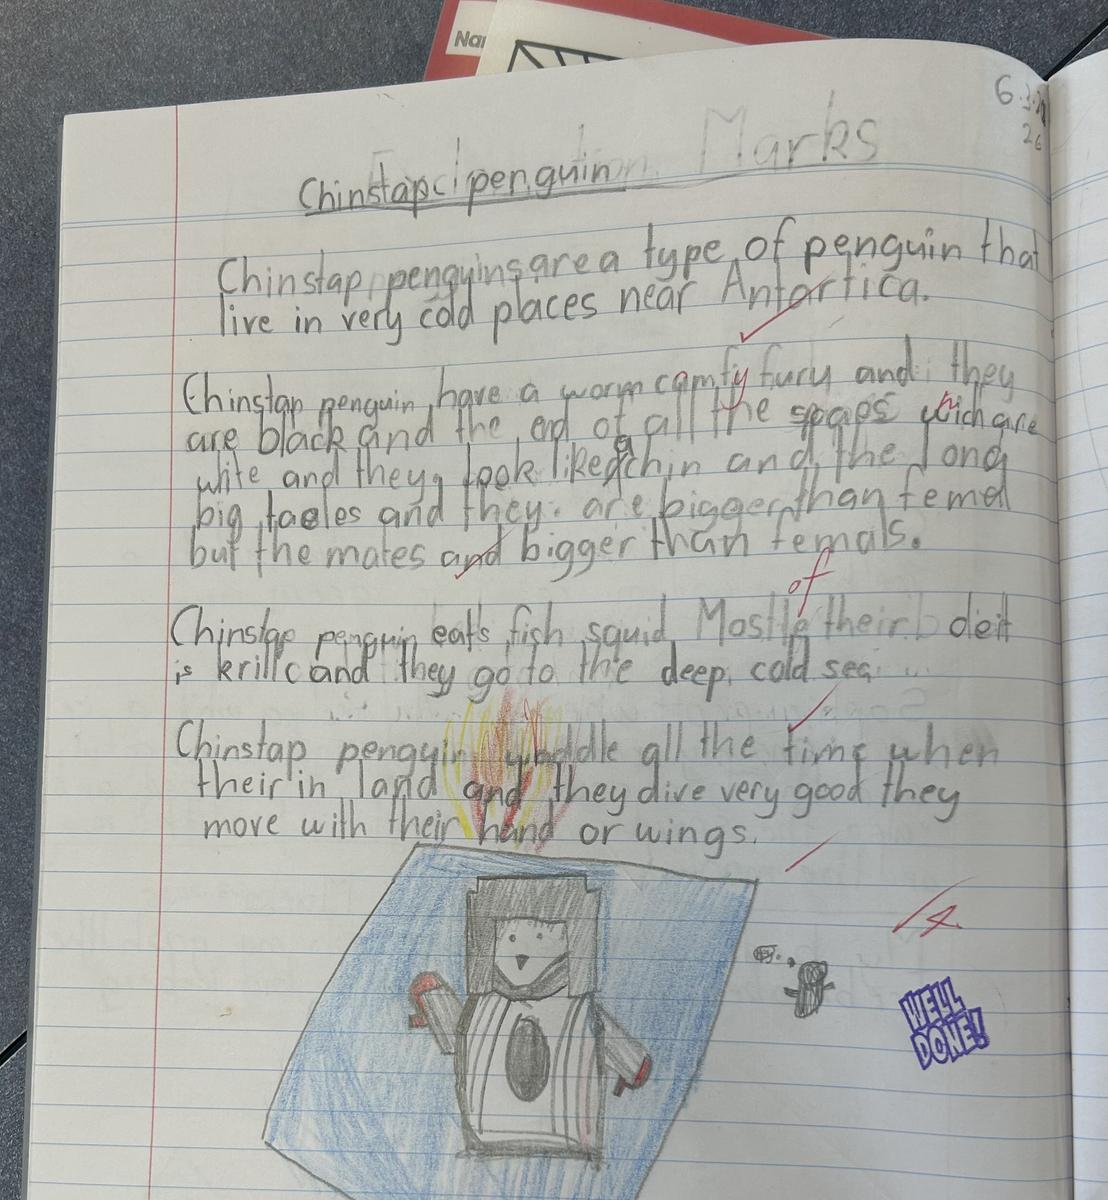 Nar
6.3.
26
Marks
Chinstap penguin
Chinstap penguins are a type of penguin that
live in very cold places near Antartica.
Chinstap penguin have a worm comfy fury and they
are black and the end of all the spaes which are
wite and they look like a chin and the long
big taeles and they. are bigger than femal
but the males and bigger than femals.
of
Chinstap penguin eats fish squid Mostle their deit
is krill and they go to the deep cold sea
Chinstap penguin waddle all the time when
their in land and they dive very good they
move with their hand or wings.
WELL
DONE!